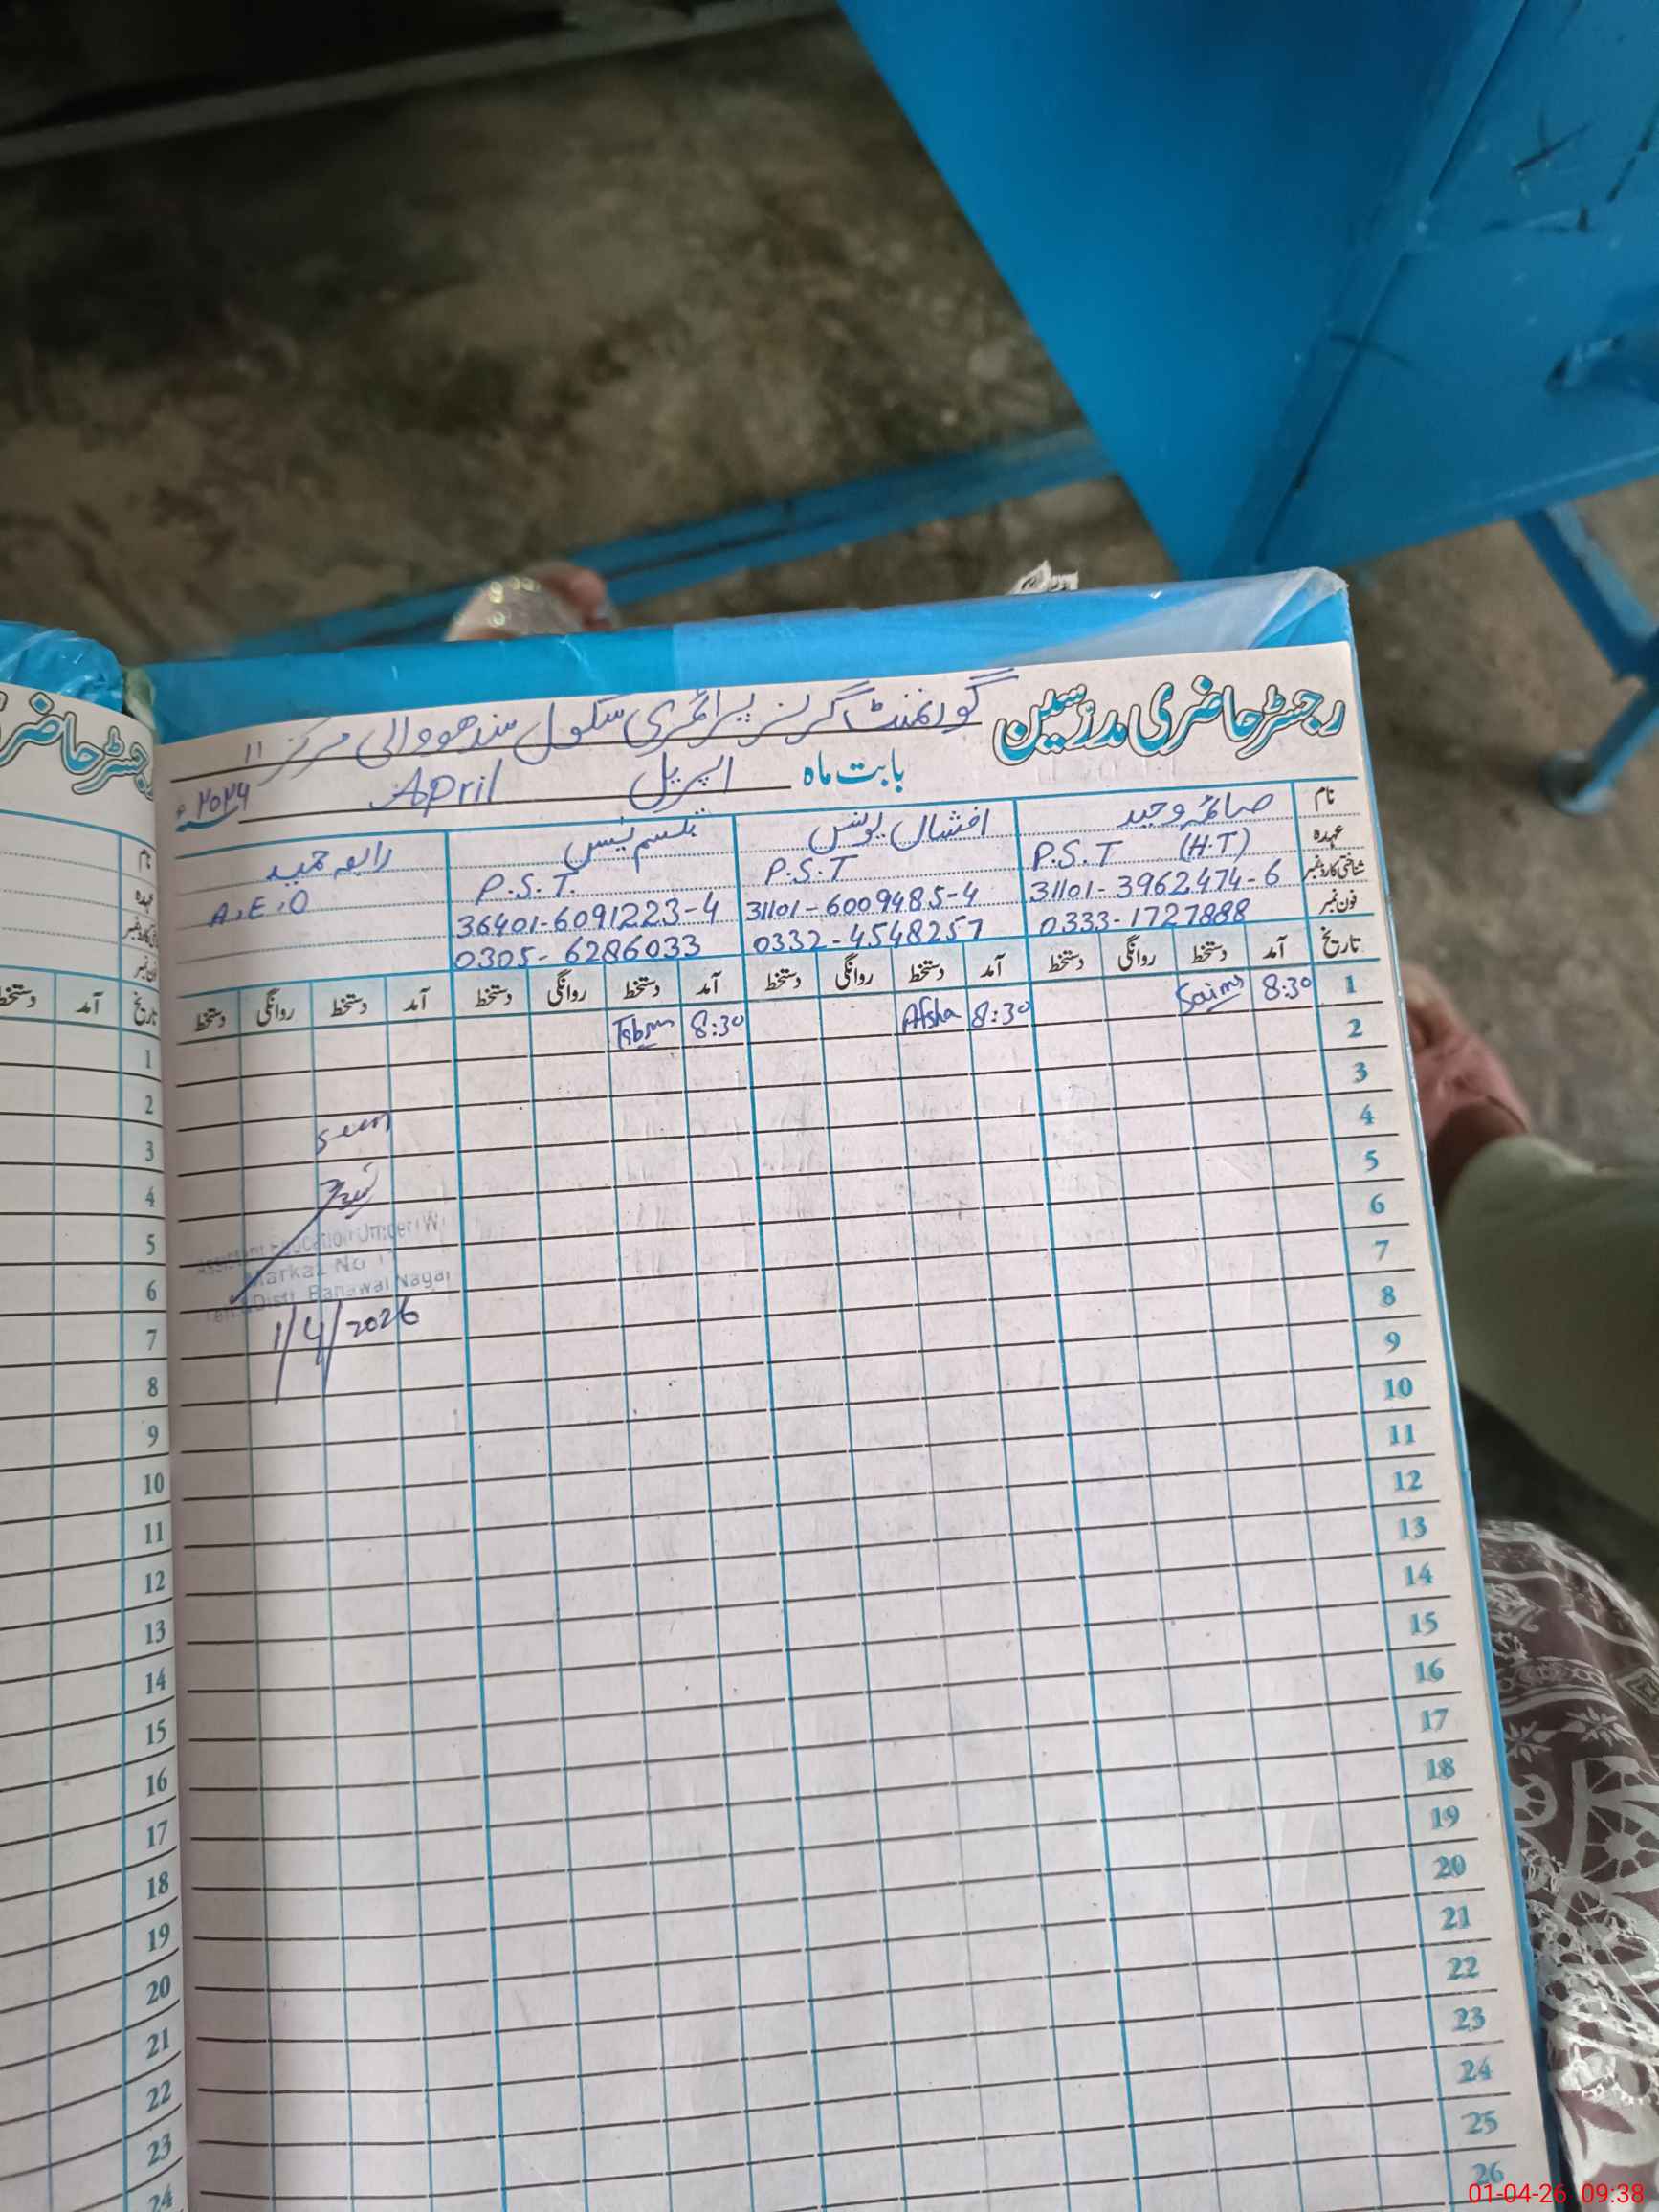 رجسٹر حاضری مدرسین گورنمنٹ گرلز پرائمری سکول سندھووالی مرکز ۱۱
بابت ماہ اپریل April ۲۰۲۶ء
نام صائمہ وحید افشاں یونس تبسم رابعہ حمید
عہدہ P.S.T (H.T) P.S.T P.S.T. A.E.O
شناختی کارڈ نمبر 31101-3962474-6 31101-6009485-4 36401-6091223-4
فون نمبر 0333-1727888 0332-4548257 0305-6286033
تاریخ آمد دستخط روانگی دستخط آمد دستخط روانگی دستخط آمد دستخط روانگی دستخط آمد دستخط روانگی دستخط
1 8:30 Saima 8:30 Afsha 8:30
2
3
4
5
6
7
8
9
10
11
12
13
14
15
16
17
18
19
20
21
22
23
24
25
26
Seen
Assistant Education Officer (W)
Markaz No
Distt. Bahawal Nagar
1/4/2026
رجسٹر حاضری
نام
عہدہ
تاریخ آمد دستخط
1
2
3
4
5
6
7
8
9
10
11
12
13
14
15
16
17
18
19
20
21
22
23
24
01-04-26 09:38